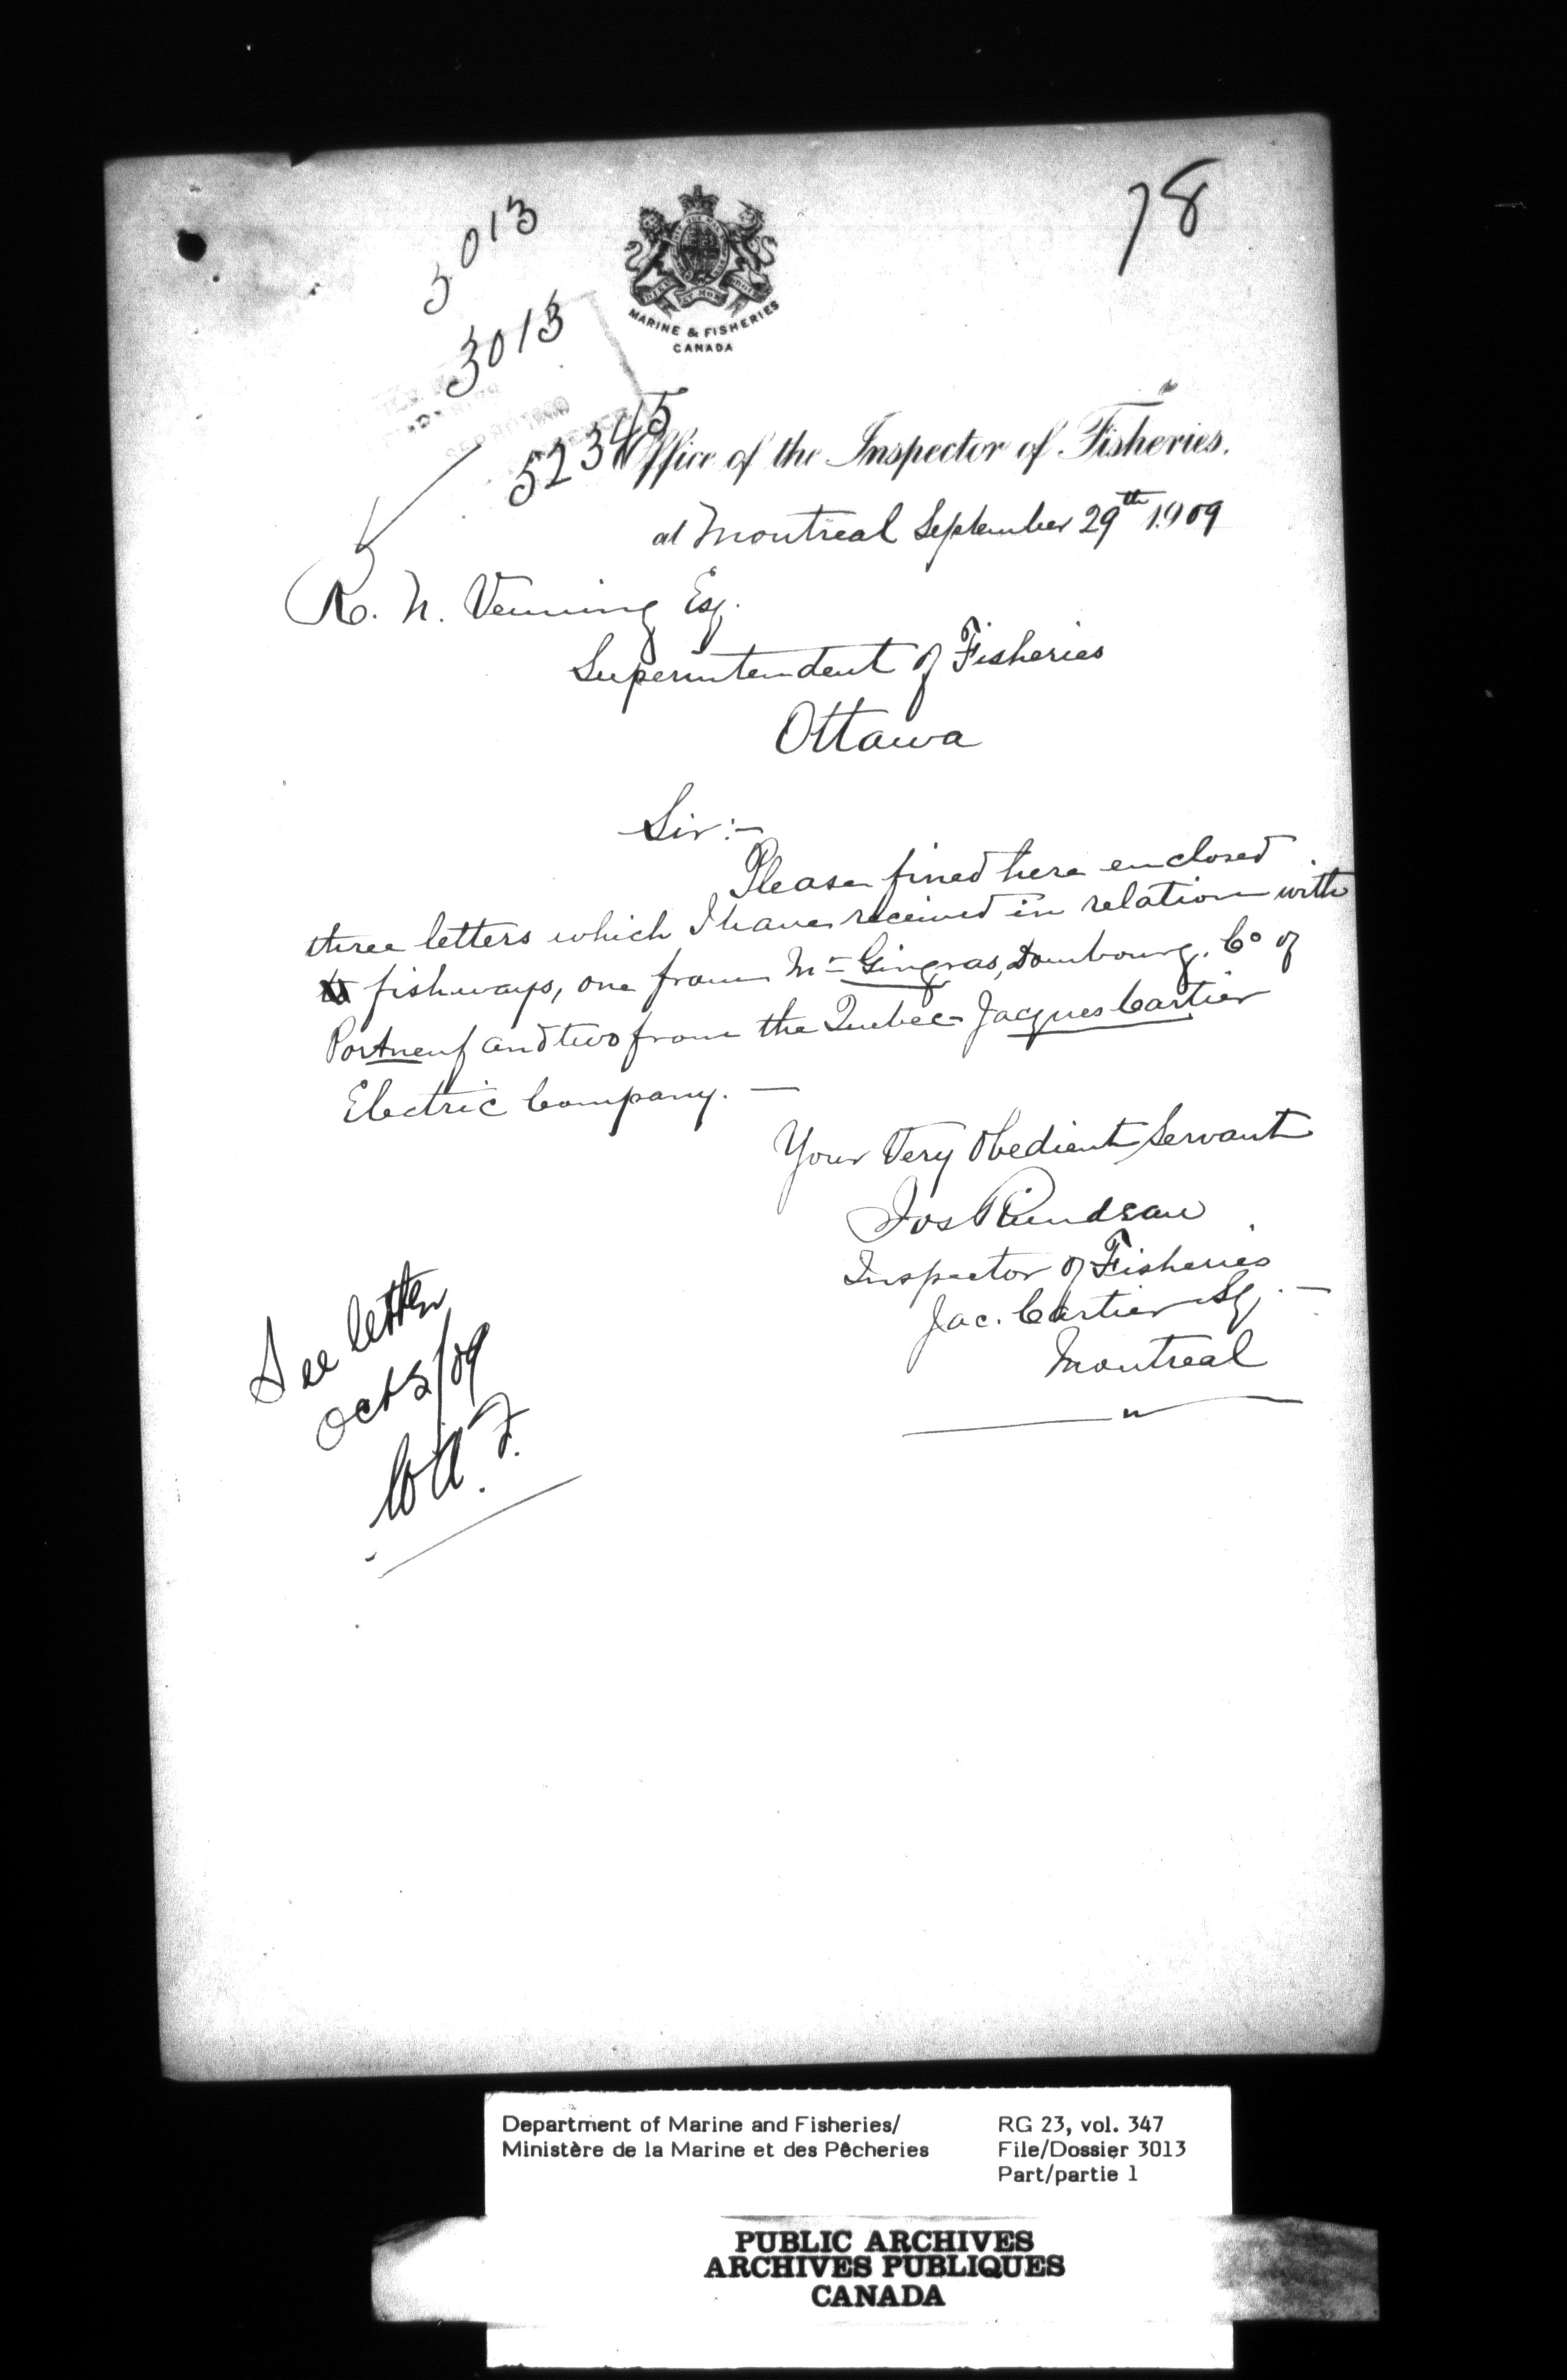 78
3013
3013
52345
MARINE & FISHERIES
CANADA
Office of the Inspector of Fisheries.
at Montreal September 29th 1909
R. N. Venning Esq.
Superintendent of Fisheries
Ottawa
Sir:-
Please fined here enclosed
three letters which I have received in relation with
fishways, one from Mr Gingras, Dombourg. Co of
Portneuf and two from the Quebec Jacques Cartier
Electric Company. —
Your Very Obedient Servant
Jos Riendeau
Inspector of Fisheries
Jac. Cartier Sq. —
Montreal
See letter
Oct 5/09
W.A.F.
Department of Marine and Fisheries/
Ministère de la Marine et des Pêcheries
RG 23, vol. 347
File/Dossier 3013
Part/partie 1
PUBLIC ARCHIVES
ARCHIVES PUBLIQUES
CANADA